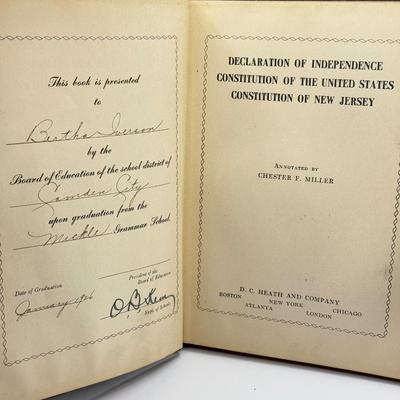 This book is presented
to
Bertha Iverson
by the
Board of Education of the school district of
Camden City
upon graduation from the
Mickle Grammar School.
Date of Graduation
January 1926
President of the
Board of Education
Supt. of Schools
DECLARATION OF INDEPENDENCE
CONSTITUTION OF THE UNITED STATES
CONSTITUTION OF NEW JERSEY
ANNOTATED BY
CHESTER F. MILLER
D. C. HEATH AND COMPANY
BOSTON NEW YORK CHICAGO
ATLANTA LONDON